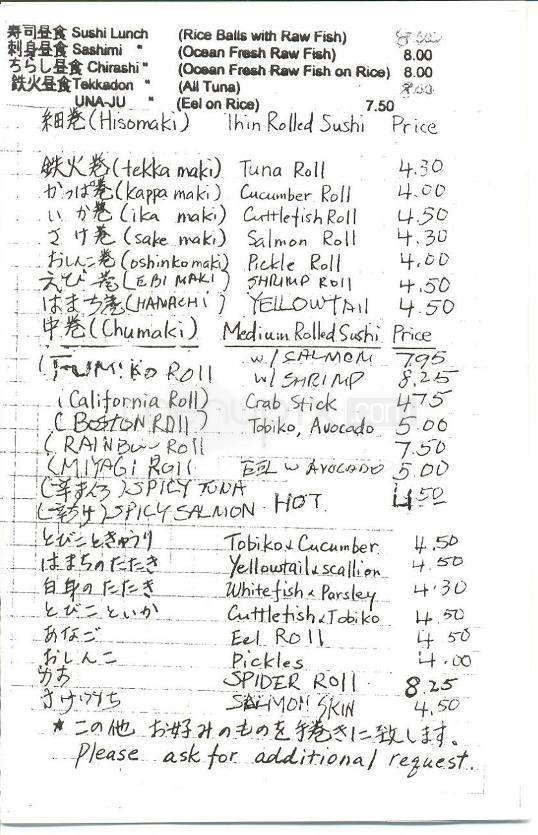 寿司昼食 Sushi Lunch (Rice Balls with Raw Fish) 8.50
刺身昼食 Sashimi " (Ocean Fresh Raw Fish) 8.00
ちらし昼食 Chirashi " (Ocean Fresh Raw Fish on Rice) 8.00
鉄火昼食 Tekkadon " (All Tuna) 8.00
UNA-JU " (Eel on Rice) 7.50
細巻 (Hisomaki) Thin Rolled Sushi Price
鉄火巻 (tekka maki) Tuna Roll 4.30
かっぱ巻 (kappa maki) Cucumber Roll 4.00
いか巻 (ika maki) Cuttlefish Roll 4.50
さけ巻 (sake maki) Salmon Roll 4.30
おしんこ巻 (oshinko maki) Pickle Roll 4.00
えび巻 (EBI MAKI) SHRIMP ROLL 4.50
はまち巻 (HAMACHI) YELLOWTAIL 4.50
中巻 (Chumaki) Medium Rolled Sushi Price
ROLL w/ SALMON 7.95
w/ SHRIMP 8.25
(California Roll) Crab Stick 4.75
(BOSTON ROLL) Tobiko, Avocado 5.00
(RAINBOW ROLL 7.50
(MIYAGI ROLL EEL w AVOCADO 5.00
SPICY TUNA
SPICY SALMON HOT 4.50
とびこときゅうり Tobiko & Cucumber 4.50
はまちのたたき Yellowtail & scallion 4.50
白身のたたき Whitefish & Parsley 4.30
とびこといか Cuttlefish & Tobiko 4.50
あなご Eel ROLL 4 50
おしんこ Pickles 4.00
SPIDER ROLL 8.25
SALMON SKIN 4.50
* この他 お好みのものを手巻きに致します。
Please ask for additional request.